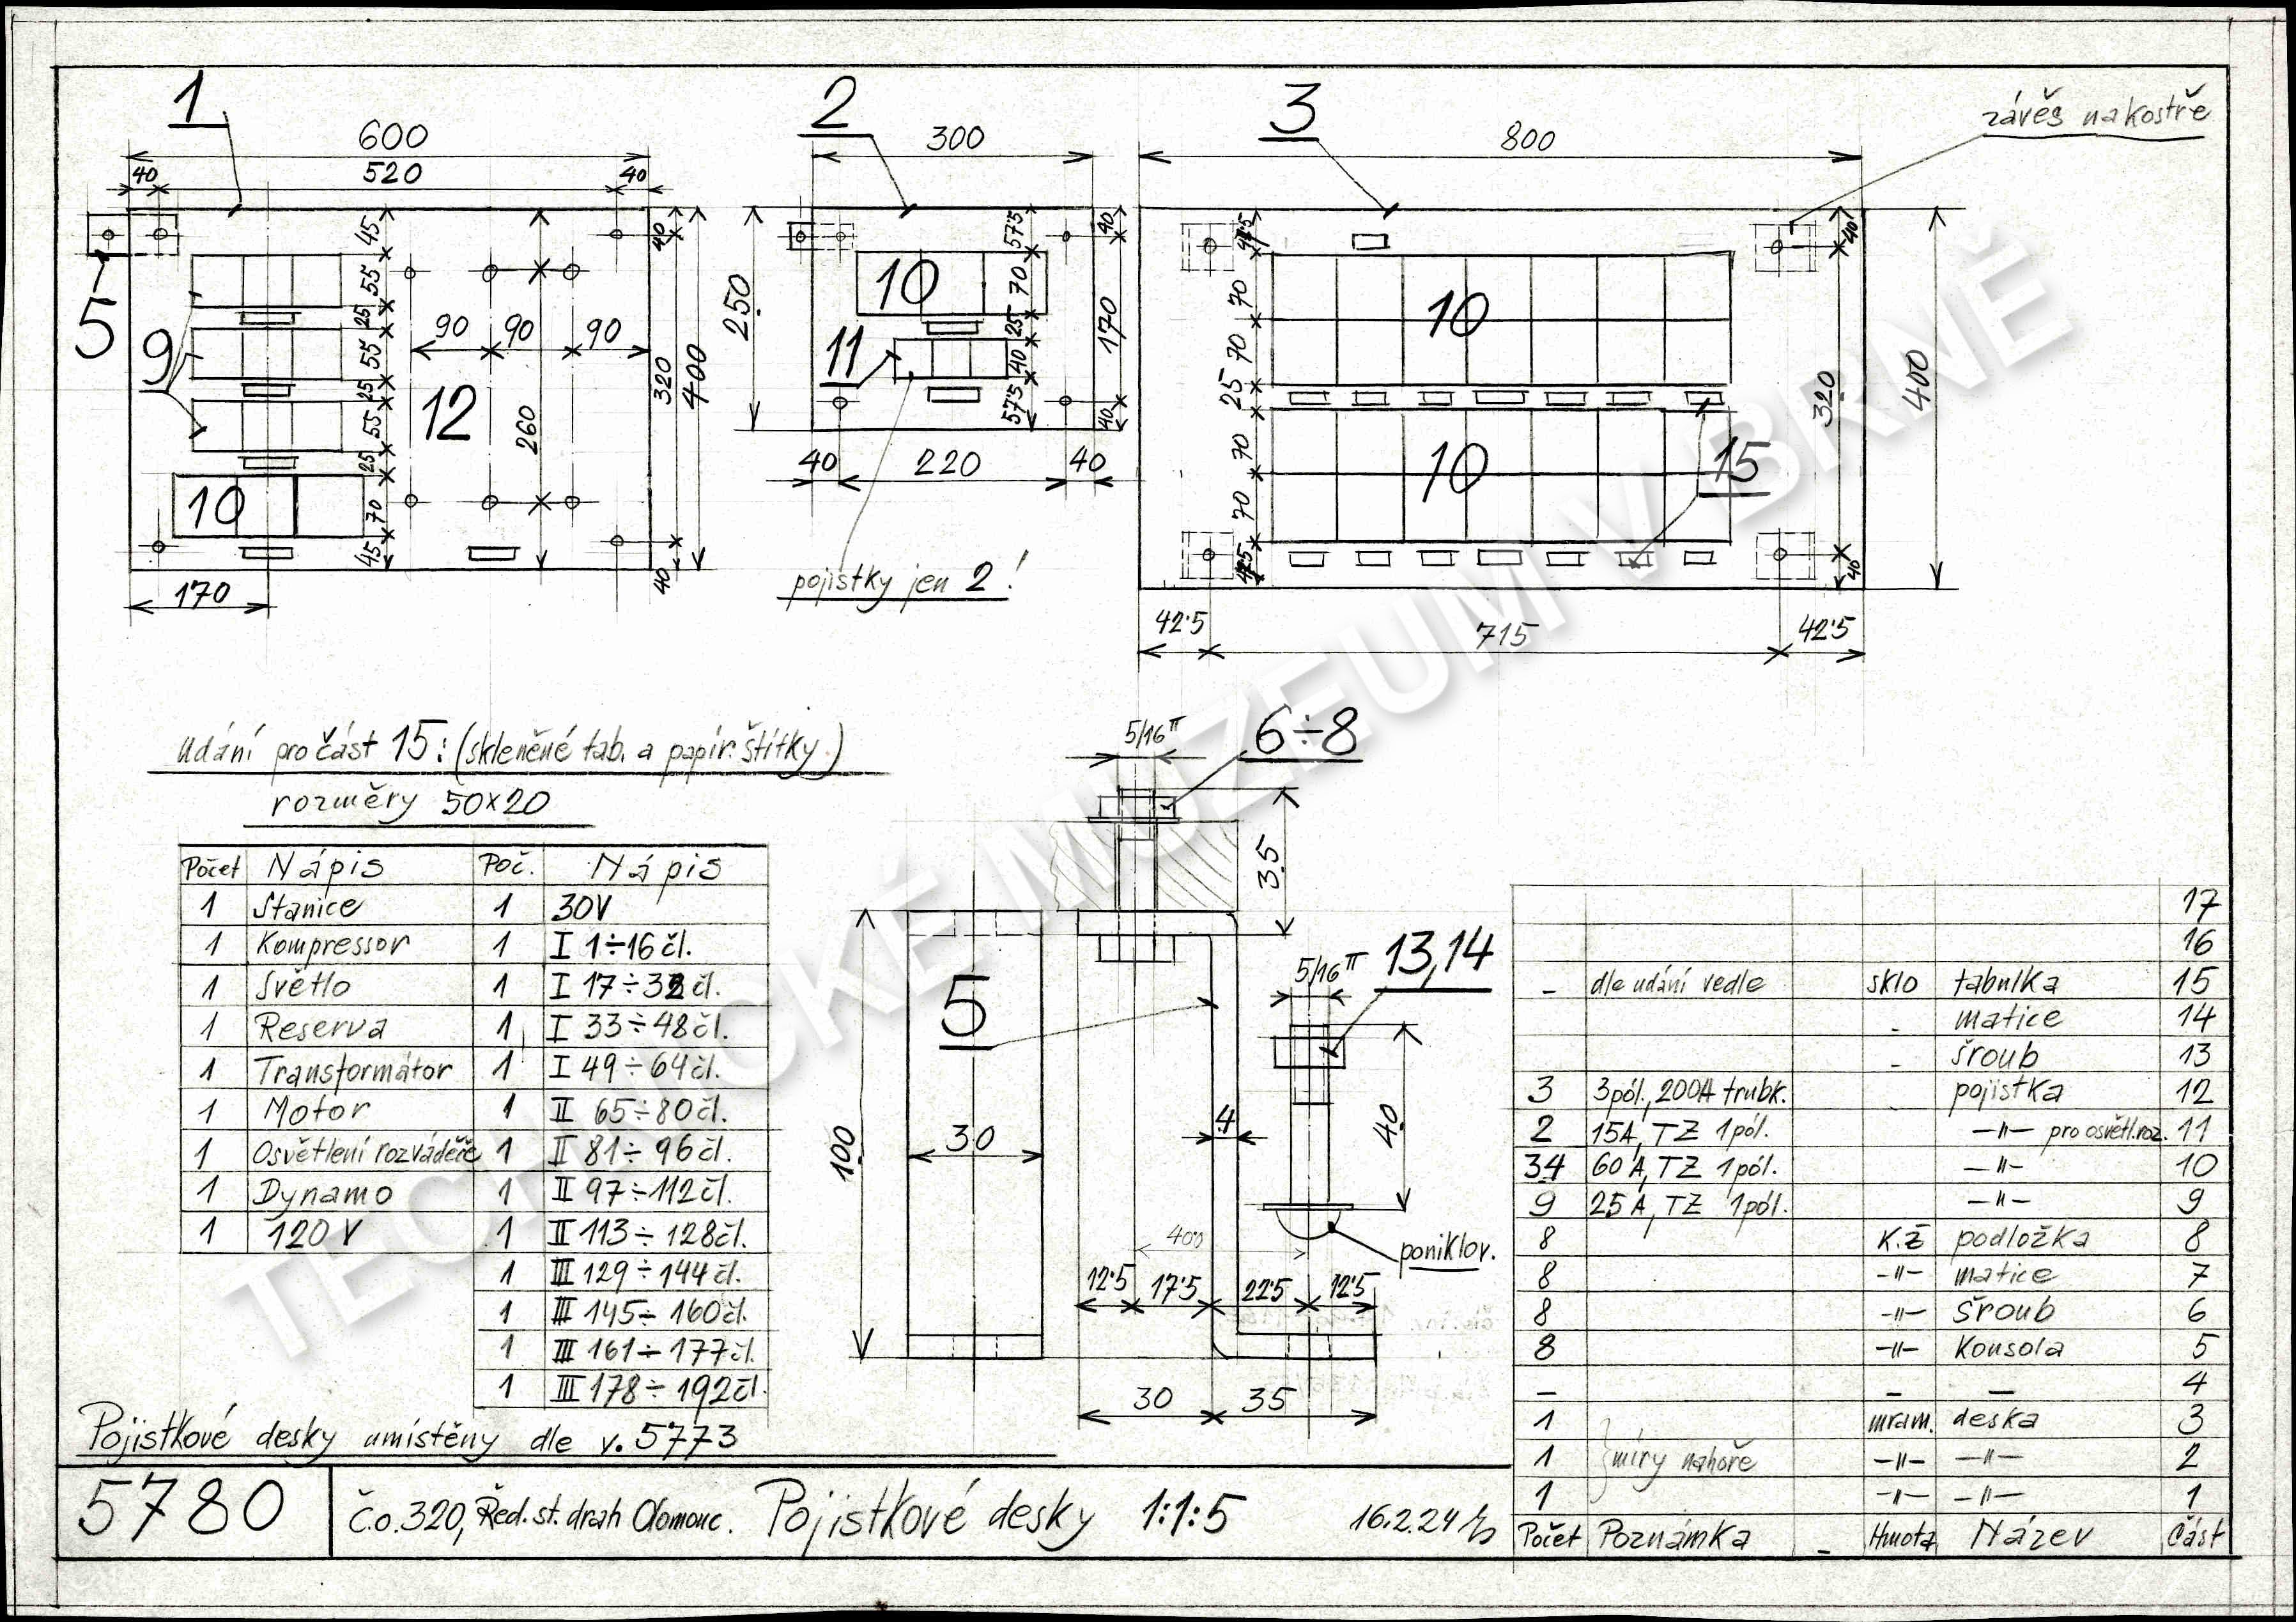 1
600
40 520 40
5
9
10
12
45
55
25
55
25
55
25
70
45
90 90 90
260
40
320
400
40
170
2
300
250
10
11
57·5
70
25
40
57·5
40
170
40
40 220 40
pojistky jen 2!
3
800
závěs na kostře
10
10
15
42·5
70
70
25
70
70
42·5
40
320
400
40
42·5 715 42·5
udání pro část 15: (skleněné tab. a papír. štítky)
rozměry 50x20
Počet Nápis Poč. Nápis
1 Stanice 1 30V
1 Kompressor 1 I 1÷16 čl.
1 Světlo 1 I 17÷32 čl.
1 Reserva 1 I 33÷48 čl.
1 Transformátor 1 I 49÷64 čl.
1 Motor 1 II 65÷80 čl.
1 Osvětlení rozváděče 1 II 81÷96 čl.
1 Dynamo 1 II 97÷112 čl.
1 120 V 1 II 113÷128 čl.
1 III 129÷144 čl.
1 III 145÷160 čl.
1 III 161÷177 čl.
1 III 178÷192 čl.
5/16" 6÷8
35
5
100
30
4
5/16" 13,14
40
400
poniklov.
12·5 17·5 22·5 12·5
30 35
17
16
- dle udání vedle sklo tabulka 15
- matice 14
- šroub 13
3 3pól., 200A trubk. pojistka 12
2 15A, TZ 1pól. -"- pro osvětl. roz. 11
34 60A, TZ 1pól. -"- 10
9 25A, TZ 1pól. -"- 9
8 K.Ž podložka 8
8 -"- matice 7
8 -"- šroub 6
8 -"- Konsola 5
- - - 4
1 mram. deska 3
1 míry nahoře -"- -"- 2
1 -"- -"- 1
Počet Poznámka - Hmota Název Část
Pojistkové desky umístěny dle v. 5773
5780 Č.o. 320, Řed. st. drah Olomouc. Pojistkové desky 1:1:5 16.2.24
TECHNICKÉ MUZEUM V BRNĚ